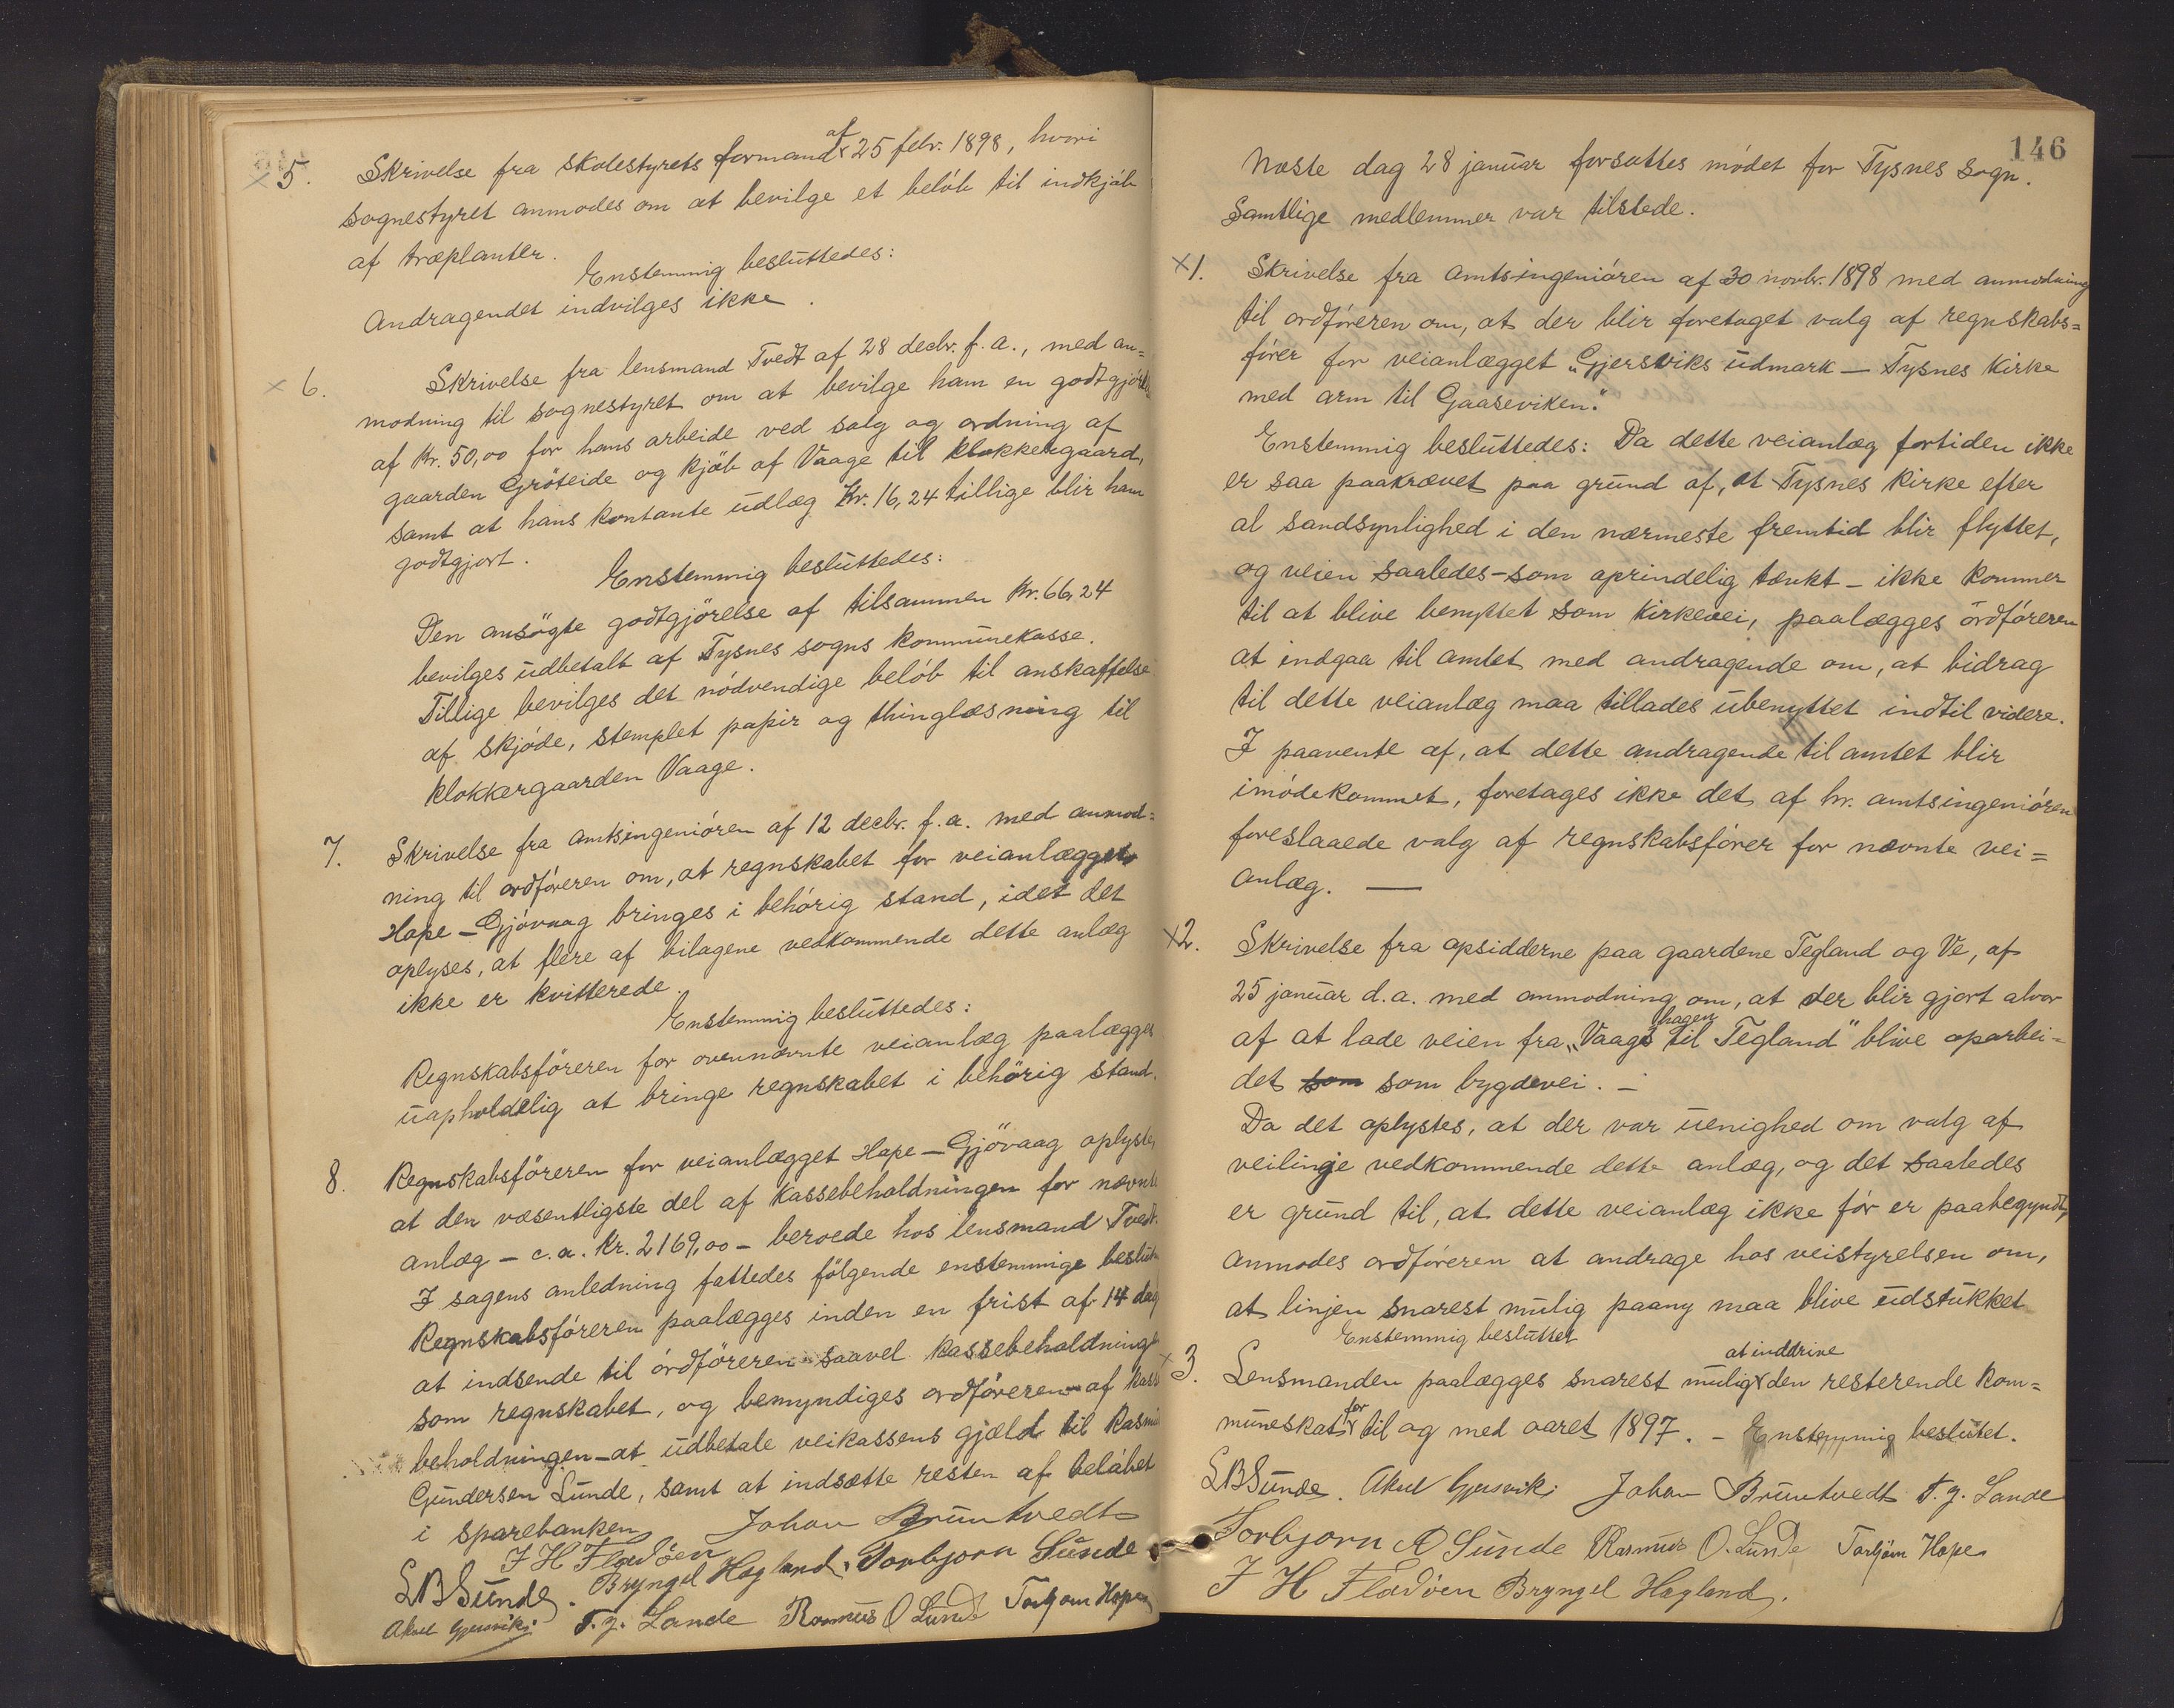 5. Skrivelse fra skolestyrets formand af 25 febr. 1898, hvori
sognestyret anmodes om at bevilge et beløb til indkjøb
af træplanter.
Enstemmig besluttedes:
Andragendet indvilges ikke.
6. Skrivelse fra lensmand Tvedt af 28 decbr. f.a., med an=
modning til sognestyret om at bevilge ham en godtgjörelse
af Kr. 50,00 for hans arbeide ved salg og ordning af
gaarden Gröteide og kjøb af Vaage til klokkergaard,
samt at hans kontante udlæg Kr. 16,24 tillige blir ham
godtgjort.
Enstemmig besluttedes:
Den ansögte godtgjörelse af tilsammen Kr. 66,24
bevilges udbetalt af Tysnes sogns kommunekasse.
Tillige bevilges det nødvendige beløb til anskaffelse
af skjøde, stemplet papir og thinglæsning til
klokkergaarden Vaage.
7. Skrivelse fra amtsingeniøren af 12 decbr. f.a. med anmod=
ning til ordføreren om, at regnskabet for veianlægget
Hope – Gjövaag bringes i behørig stand, idet det
oplyses, at flere af bilagene vedkommende dette anlæg
ikke er kvitterede.
Enstemmig besluttedes:
Regnskabsföreren for ovennævnte veianlæg paalægges
uopholdelig at bringe regnskabet i behörig stand.
8. Regnskabsföreren for veianlægget Hope – Gjövaag oplyste,
at den væsentligste del af kassebeholdningen for nævnte
anlæg – c.a. Kr. 2169,00 – beroede hos lensmand Tvedt.
I sagens anledning fattedes fölgende enstemmige beslutn
Regnskabsføreren paalægges inden en frist af 14 dag
at indsende til ordföreren saavel kassebeholdning
som regnskabet, og bemyndiges ordføreren – af kasse
beholdningen – at udbetale veikassens gjæld til Rasmus
Gundersen Lunde, samt at indsætte resten af beløbet
i sparebanken
Johan Bruntvedt
J H Fladöen
LB Sunde. Bryngel Hagland. Torbjorn Sunde
Aksel Gjersvik. T. J. Lande Rasmus O Lunde Torbjørn Hope
146
Næste dag 28 januar forsattes mødet for Tysnes sogn.
Samtlige medlemmer var tilstede.
1. Skrivelse fra amtsingeniøren af 30 novbr. 1898 med anmodning
til ordføreren om, at der blir foretaget valg af regnskabs=
fører for veianlægget „Gjersviks udmark – Tysnes Kirke
med arm til Gaaseviken."
Enstemmig besluttedes: Da dette veianlæg fortiden ikke
er saa paakrævet paa grund af, at Tysnes Kirke efter
al sandsynlighed i den nærmeste fremtid blir flyttet,
og veien saaledes – som oprindelig tænkt – ikke kommer
til at blive benyttet som Kirkevei, paalægges ordføreren
at indgaa til amtet med andragende om, at bidrag
til dette veianlæg maa tillades ubenyttet indtil videre.
I paavente af, at dette andragende til amtet blir
imødekommet, foretages ikke det af hr. amtsingeniøren
foreslaaede valg af regnskabsfører for nævnte vei=
anlæg. —
2. Skrivelse fra opsidderne paa gaardene Tegland og Ve, af
25 januar d.a. med anmodning om, at der blir gjort alvor
af at lade veien fra „Vaagshagen til Tegland" blive oparbei=
det som som bygdevei. –
Da det oplystes, at der var uenighed om valg af
veilinje vedkommende dette anlæg, og det saaledes
er grund til, at dette veianlæg ikke før er paabegyndt,
anmodes ordføreren at andrage hos veistyrelsen om,
at linjen snarest mulig paany maa blive udstukket
Enstemmig besluttet
3. Lensmanden paalægges snarest mulig at inddrive den resterende kom=
muneskat for til og med aaret 1897. – Enstemmig beslutet.
LB Sunde. Aksel Gjersvik. Johan Bruntvedt T. J. Lande
Torbjorn A Sunde Rasmus O. Lunde Torbjørn Hope
J H Fladöen Bryngel Hagland.